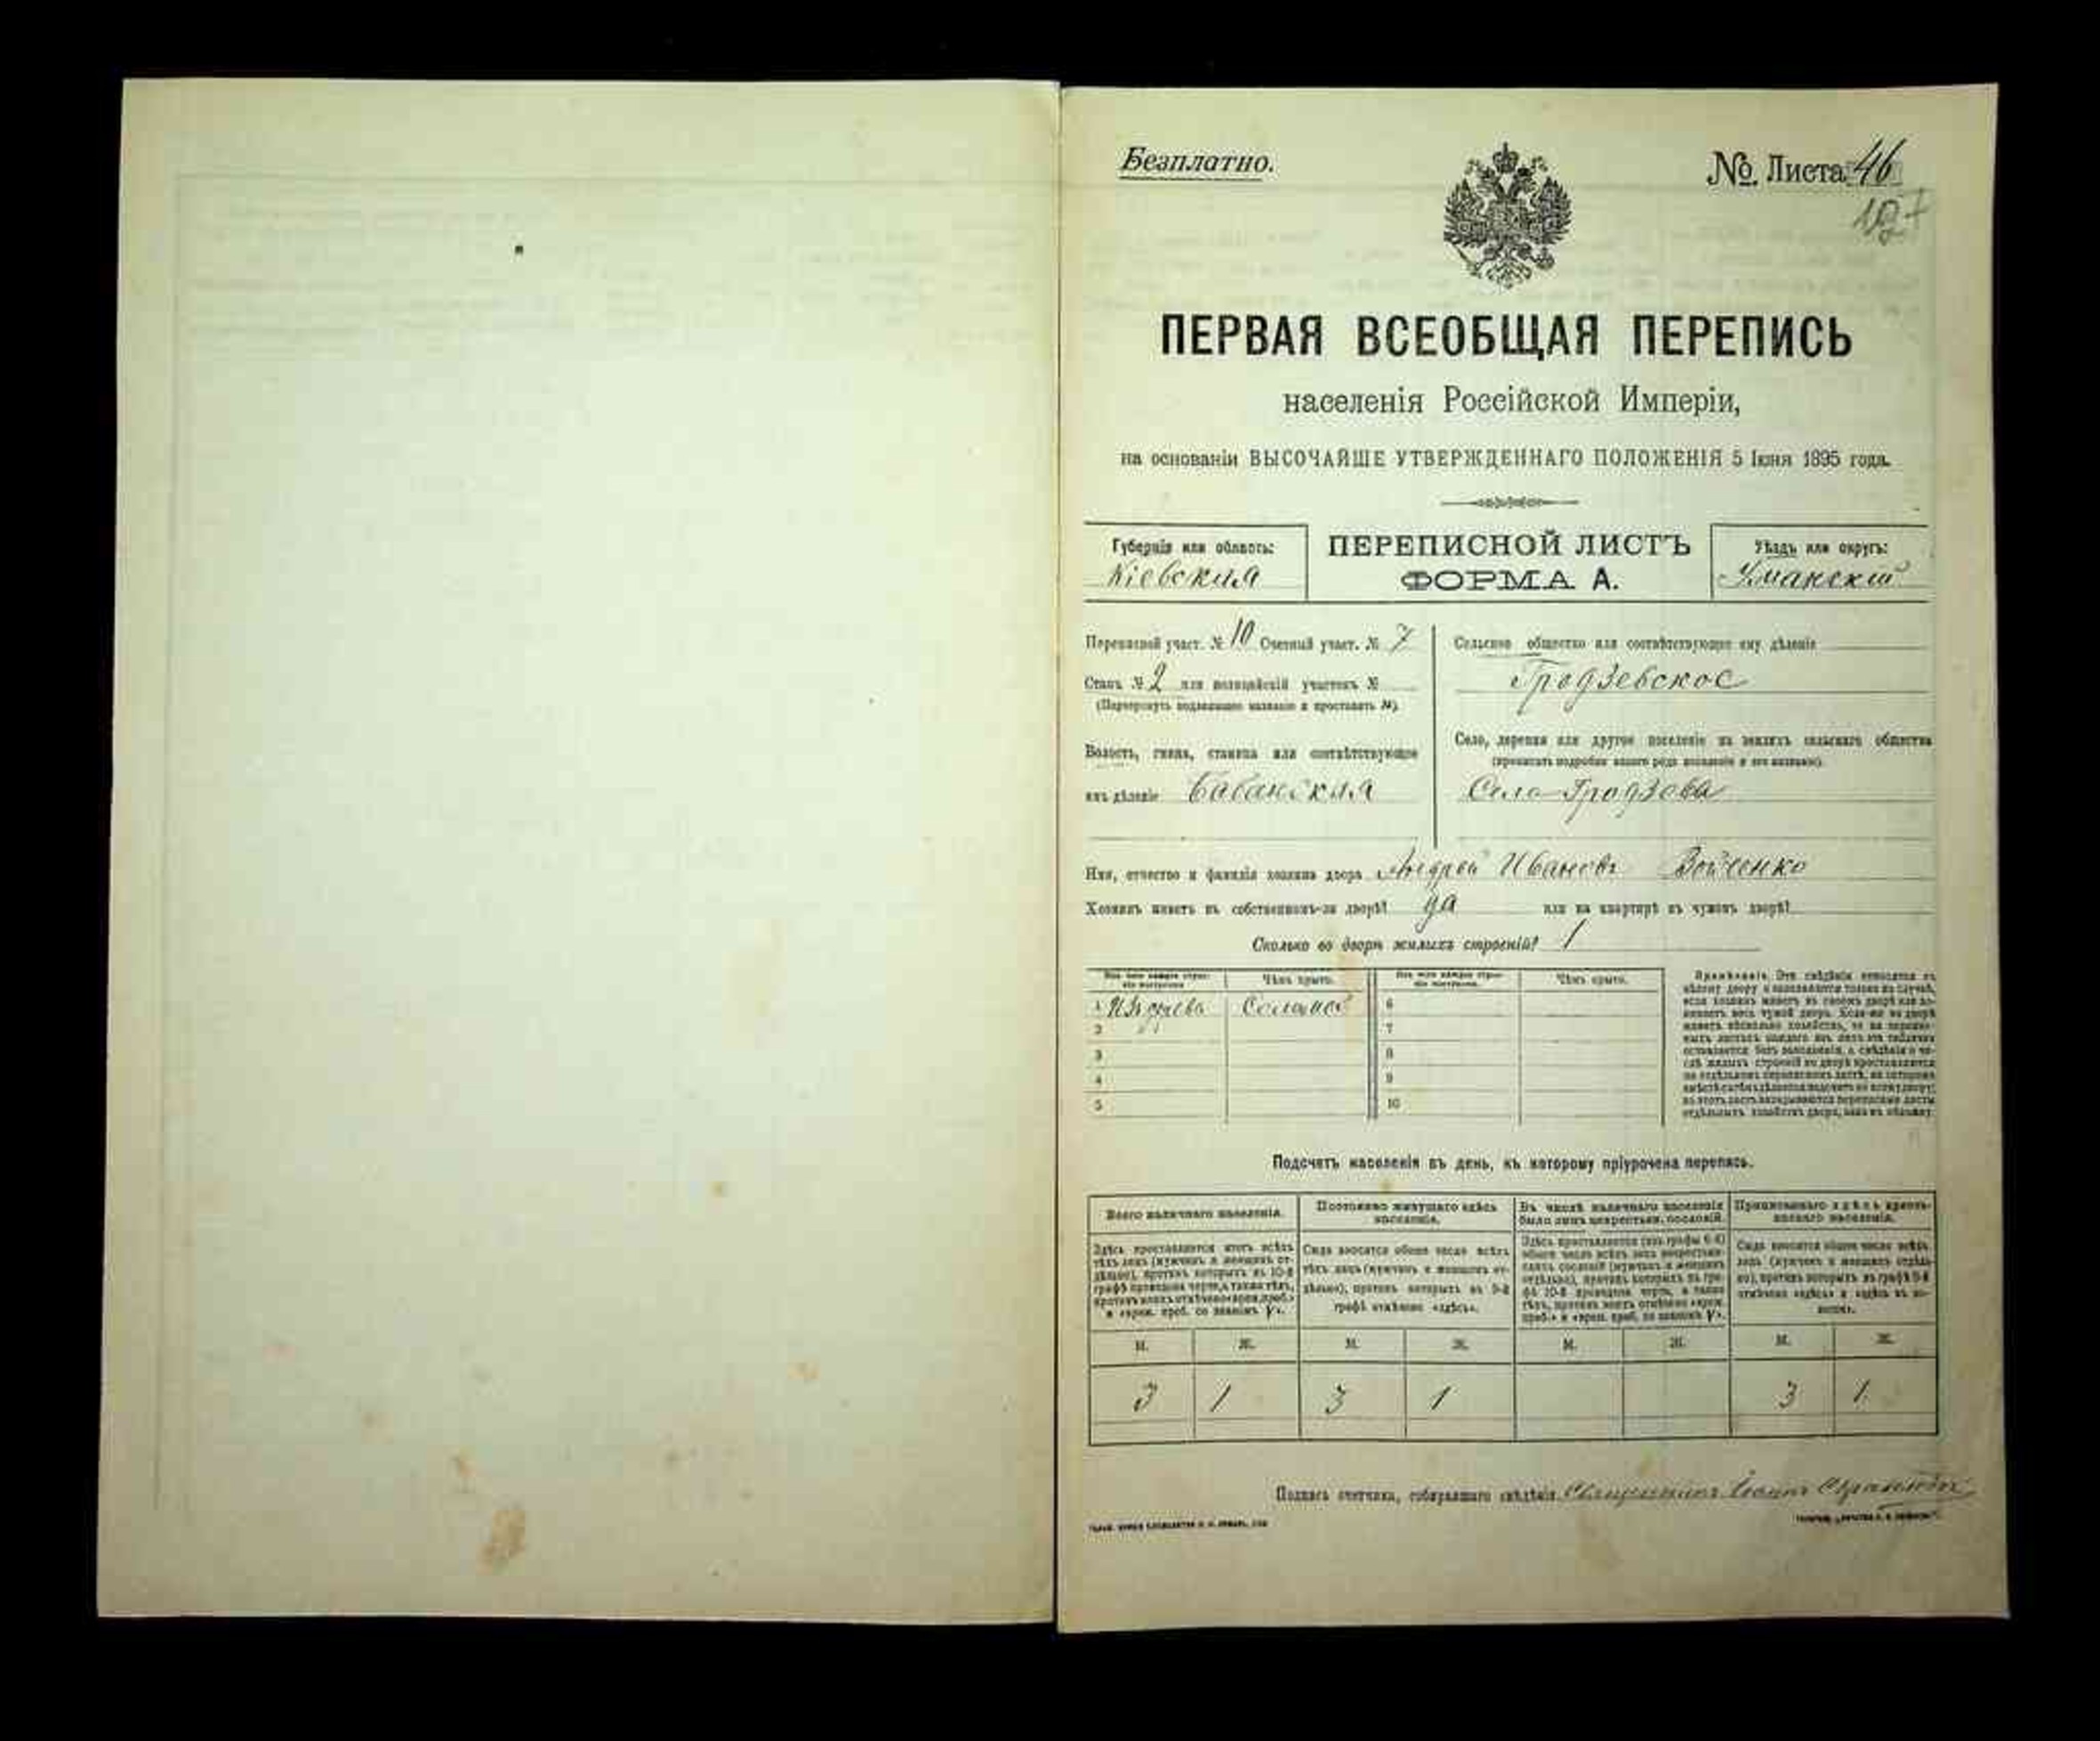 Безплатно.
№ Листа 46
ПЕРВАЯ ВСЕОБЩАЯ ПЕРЕПИСЬ
населенія Россійской Имперіи,
на основаніи ВЫСОЧАЙШЕ УТВЕРЖДЕННАГО ПОЛОЖЕНІЯ 5 Іюня 1895 года.
Губернія или область:
Кіевская
ПЕРЕПИСНОЙ ЛИСТЪ
ФОРМА А.
Уѣздъ или округъ:
Уманскій
Переписной участ. № 10 Счетный участ. № 7
Станъ № 2 или полицейскій участокъ №
(Подчеркнуть подлежащее названіе и проставить №).
Волость, гмина, станица или соотвѣтствующее
имъ дѣленіе Бабанская
Сельское общество или соотвѣтствующее ему дѣленіе
Гродзевское
Село, деревня или другое поселеніе на земляхъ сельскаго общества
(прописать подробно какого рода поселеніе и его названіе).
Село Гродзева
Имя, отчество и фамилія хозяина двора Андрей Ивановъ Войченко
Хозяинъ живетъ въ собственномъ-ли дворѣ? да или на квартирѣ въ чужомъ дворѣ?
Сколько во дворѣ жилыхъ строеній? 1
Изъ чего каждое строеніе построено. Чѣмъ крыто. Изъ чего каждое строеніе построено. Чѣмъ крыто.
1 Изъ древа Соломой 6
2 7
3 8
4 9
5 10
Примѣчаніе. Эти свѣдѣнія относятся къ
цѣлому двору и заполняются только въ случаѣ,
если хозяинъ живетъ въ своемъ дворѣ или за-
Подсчетъ населенія въ день, къ которому пріурочена перепись.
Всего наличнаго населенія.
Постоянно живущаго здѣсь населенія.
Въ числѣ наличнаго населенія было лицъ некрестьян. сословій.
Приписаннаго здѣсь крестьянскаго населенія.
Здѣсь проставляется итогъ всѣхъ
тѣхъ лицъ (мужчинъ и женщинъ от-
дѣльно), противъ которыхъ въ 10-й
графѣ проведена черта, а также тѣхъ,
Сюда вносится общее число всѣхъ
тѣхъ лицъ (мужчинъ и женщинъ от-
дѣльно), противъ которыхъ въ 9-й
графѣ отмѣчено «здѣсь».
Сюда вносится общее число всѣхъ
лицъ (мужчинъ и женщинъ отдѣль-
но), противъ которыхъ въ графѣ 8-й
М. Ж. М. Ж. М. Ж. М. Ж.
3 1 3 1 3 1
Подпись счетчика, собиравшаго свѣдѣнія Священникъ Іоаннъ